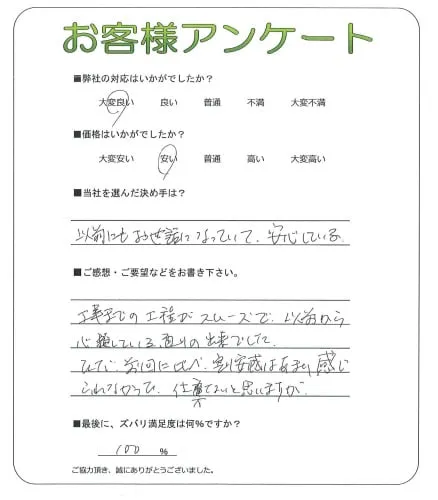 お客様アンケート
■弊社の対応はいかがでしたか?
大変良い 良い 普通 不満 大変不満
■価格はいかがでしたか?
大変安い 安い 普通 高い 大変高い
■当社を選んだ決め手は?
以前にもお世話になっていて、安心している
■ご感想・ご要望などをお書き下さい。
工事までの工程がスムーズで、以前から
心頼している通りの出来でした。
ただ、前回に比べ、割安感はあまり感じ
られなかった、仕業ないと思いますが、
■最後に、ズバリ満足度は何%ですか?
100 %
ご協力頂き、誠にありがとうございました。